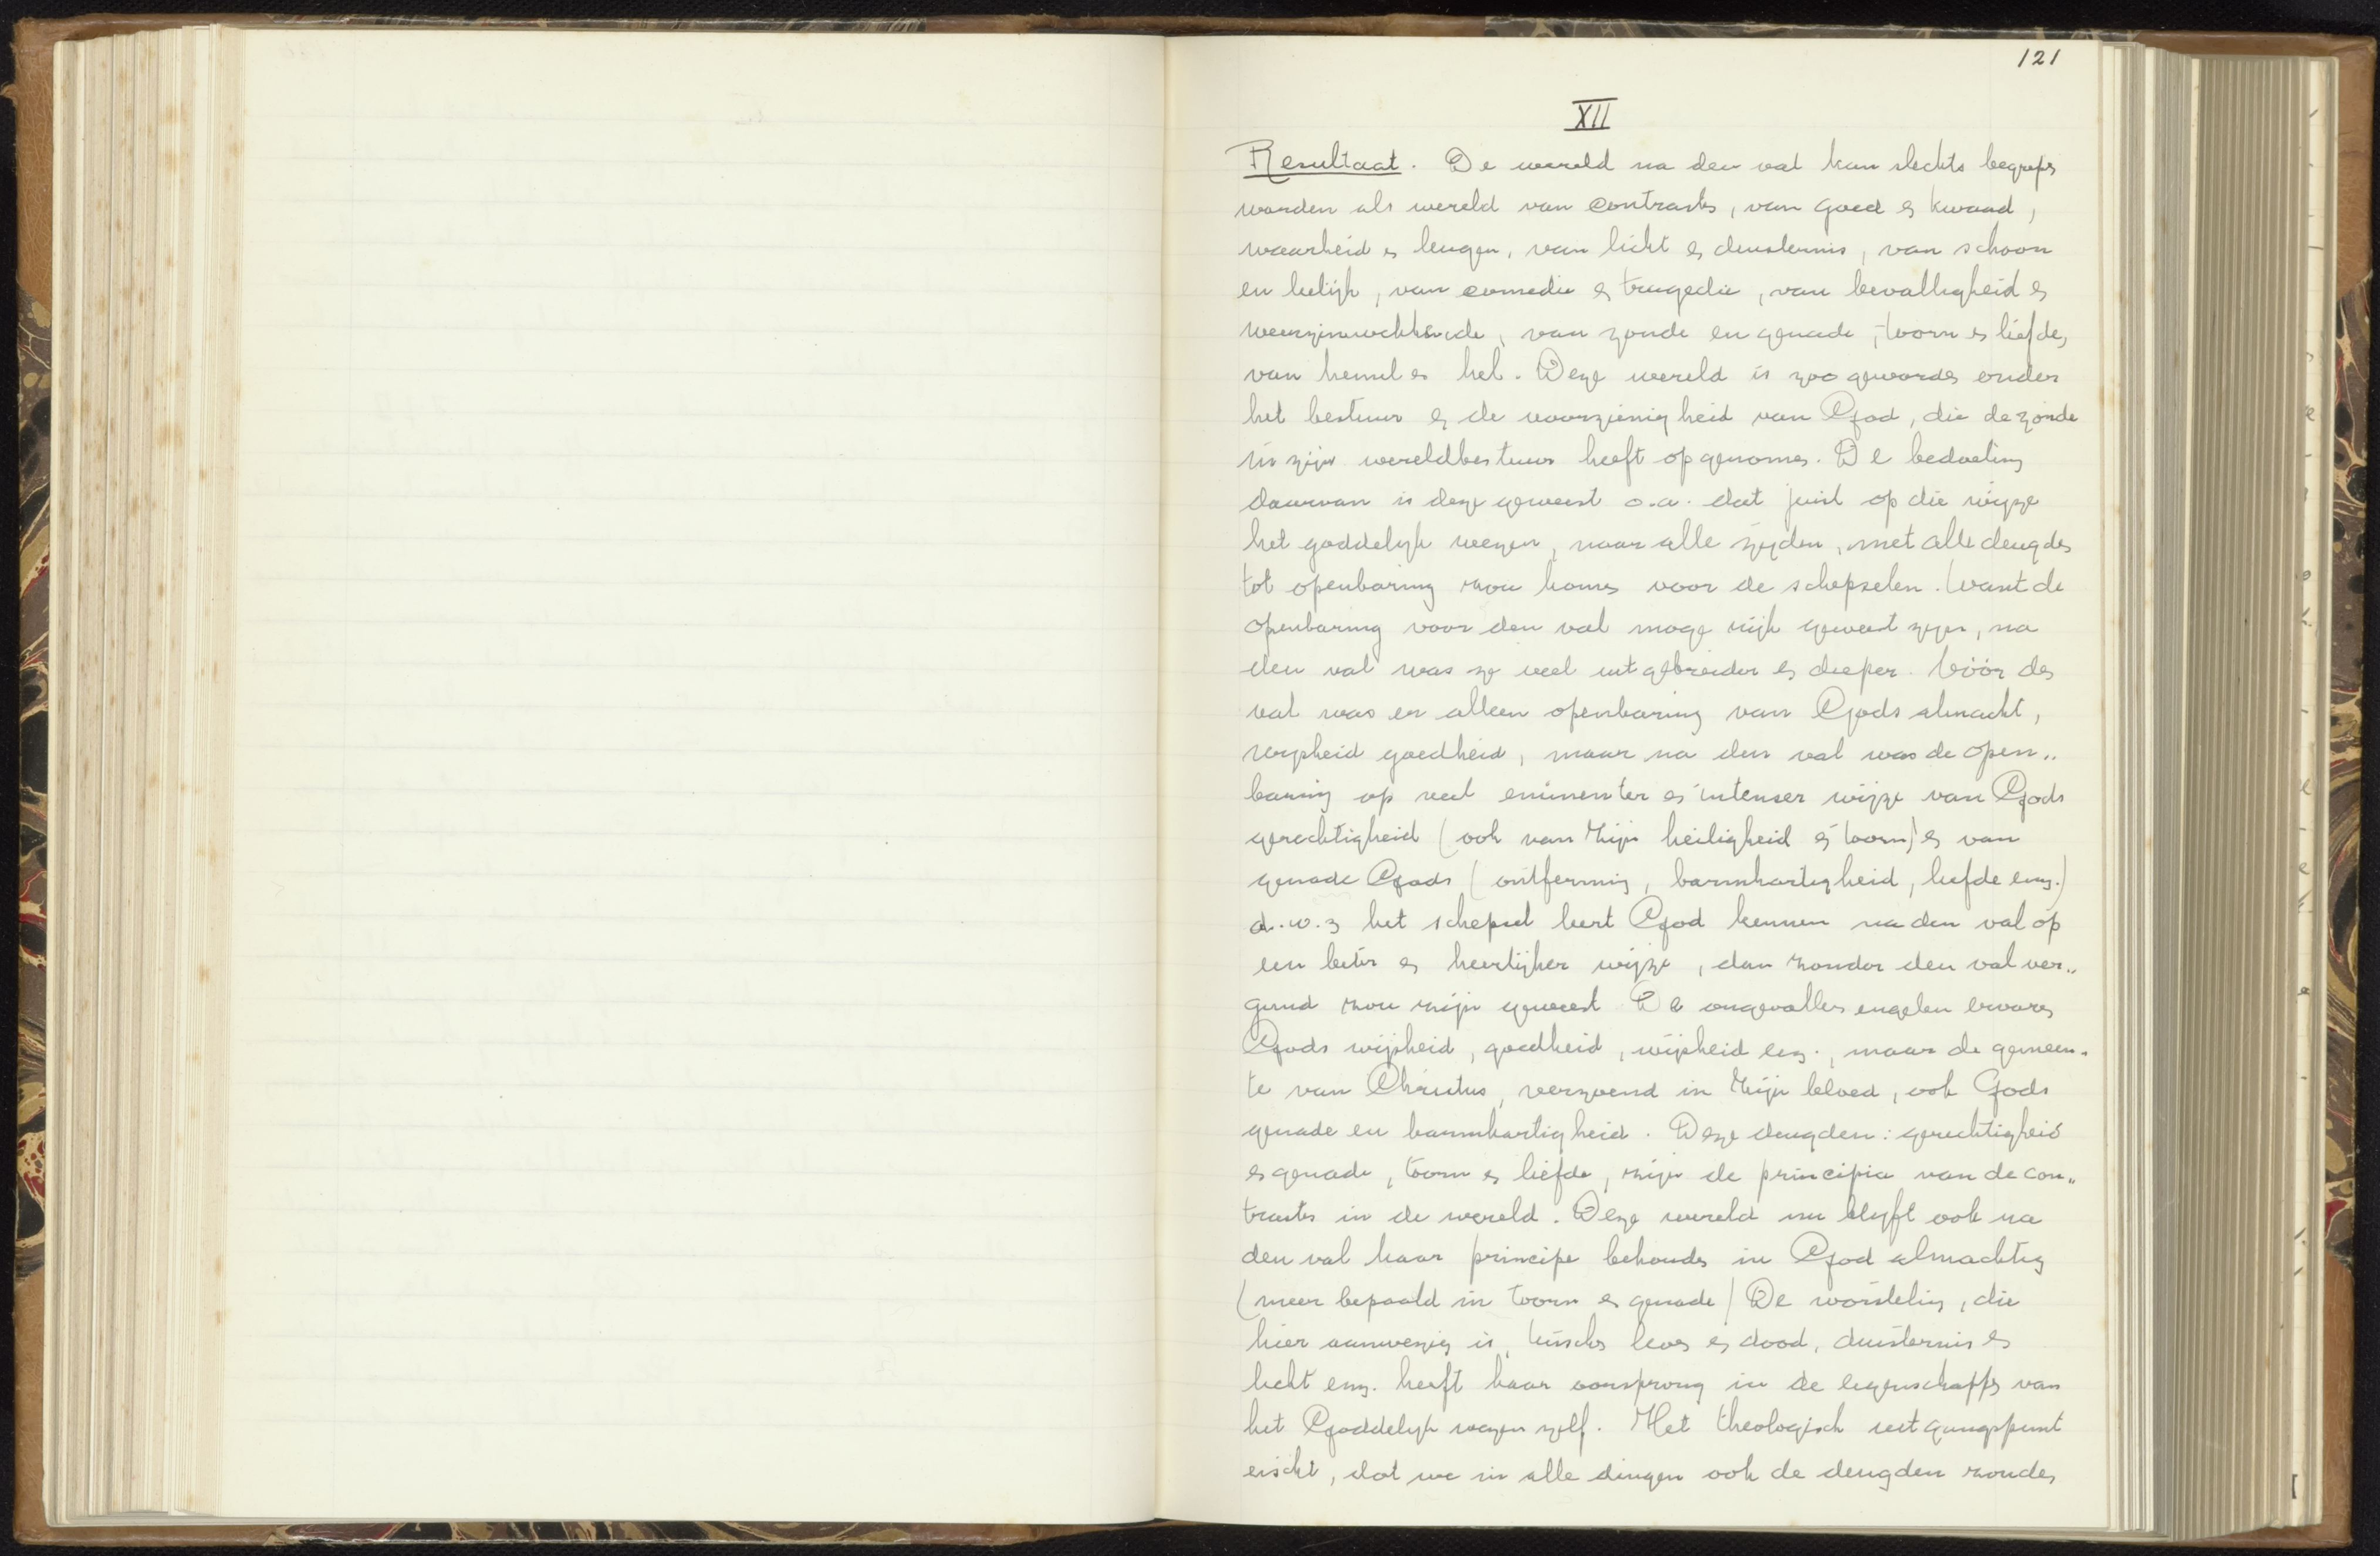 121
XII
Resultaat. De wereld na den val kan slechts begrepen
worden als wereld van contrasten, van goed en kwaad,
waarheid en leugen, van licht en duisternis, van schoon
en leelijk, van comedie en tragedie, van bevalligheid en
weerzinwekkende, van zonde en genade, toorn en liefde,
van hemel en hel. Deze wereld is zoo geworden onder
het bestuur en de voorzienigheid van God, die de zonde
in zijn wereldbestuur heeft opgenomen. De bedoeling
daarvan is deze geweest o.a. dat juist op die wijze
het goddelijk wezen, naar alle zijden, met alle deugden
tot openbaring zou komen voor de schepselen. Want de
openbaring voor den val moge rijk geweest zijn, na
den val was ze veel uitgebreider en dieper. Vóór den
val was er alleen openbaring van Gods almacht,
wijsheid goedheid, maar na den val was de open„
baring op veel eminenter en intenser wijze van Gods
gerechtigheid (ook van Zijn heiligheid en toorn) en van
genade Gods (ontferming, barmhartigheid, liefde enz.)
d.w.z het schepsel leert God kennen na den val op
een beter en heerlijker wijze, dan zonder den val ver„
gund zou zijn geweest De ongevallen engelen ervaren
Gods wijsheid, goedheid, wijsheid enz., maar de gemeen„
te van Christus, verzoend in Zijn bloed, ook Gods
genade en barmhartigheid. Deze deugden: gerechtigheid
en genade, toorn en liefde, zijn de principia van de con„
trasten in de wereld. Deze wereld nu blijft ook na
den val haar principe behouden in God almachtig
(meer bepaald in toorn en genade) De worsteling, die
hier aanwezig is, tusschen leven en dood, duisternis en
licht enz. heeft haar oorsprong in de eigenschappen van
het Goddelijk wezen zelf. Het theologisch uitgangspunt
eischt, dat we in alle dingen ook de deugden zouden